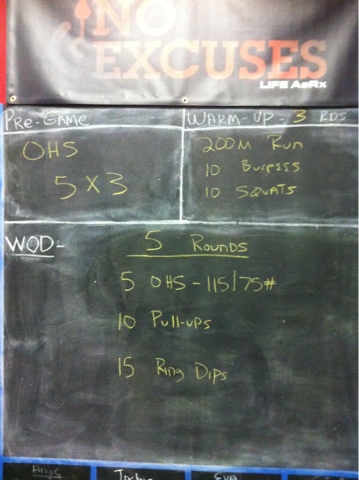 NO
EXCUSES
LIFE AsRx
PRE-GAME
OHS
5 X 3
WARM-UP - 3 RDS
200M RUN
10 BURPEES
10 SQUATS
WOD-
5 ROUNDS
5 OHS - 115/75#
10 PULL-UPS
15 RING DIPS